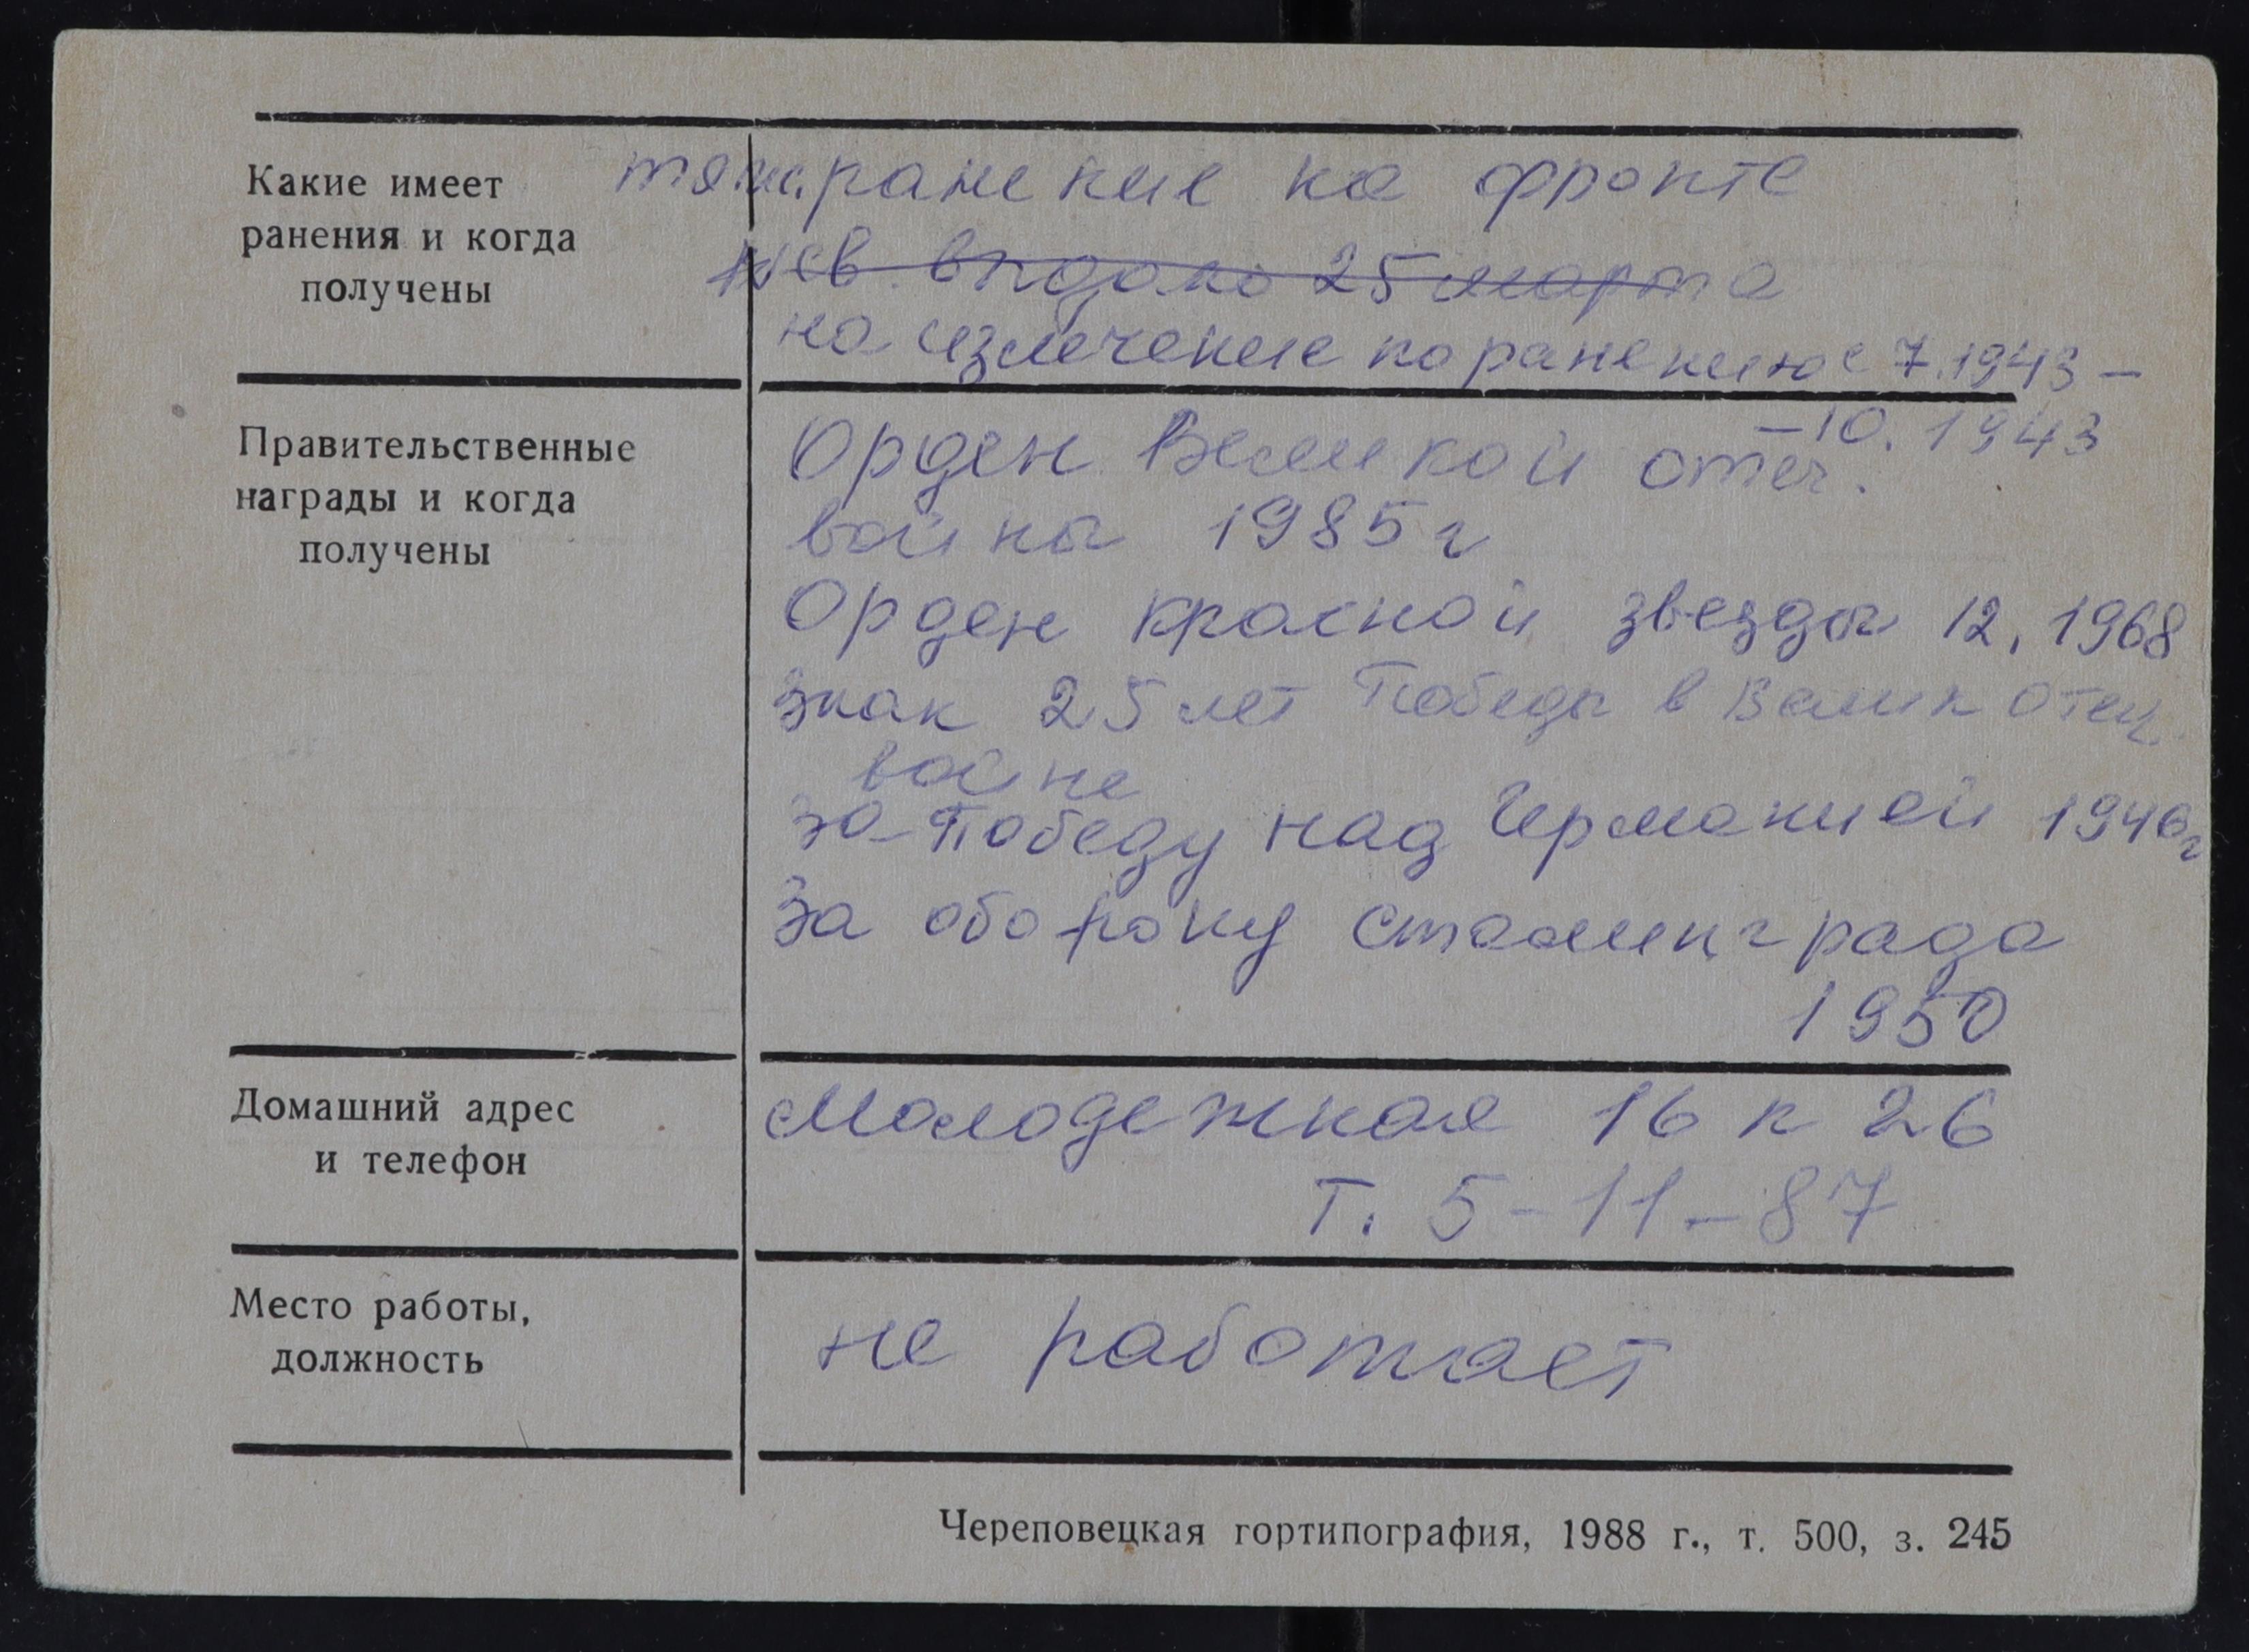 Какие имеет
ранения и когда
получены
тяж. ранение на фронте
25 марта
на излечение по ранению с 7.1943 –
– 10. 1943
Правительственные
награды и когда
получены
Орден Великой отеч.
войны 1985 г
Орден красной звезды 12. 1968
Знак 25 лет Победы в Велик Отеч
войне
За Победу над Германией 1946 г
За оборону Сталинграда
1950
Домашний адрес
и телефон
Молодежная 16 к 26
Т. 5-11-87
Место работы,
должность
не работает
Череповецкая гортипография, 1988 г., т. 500, з. 245